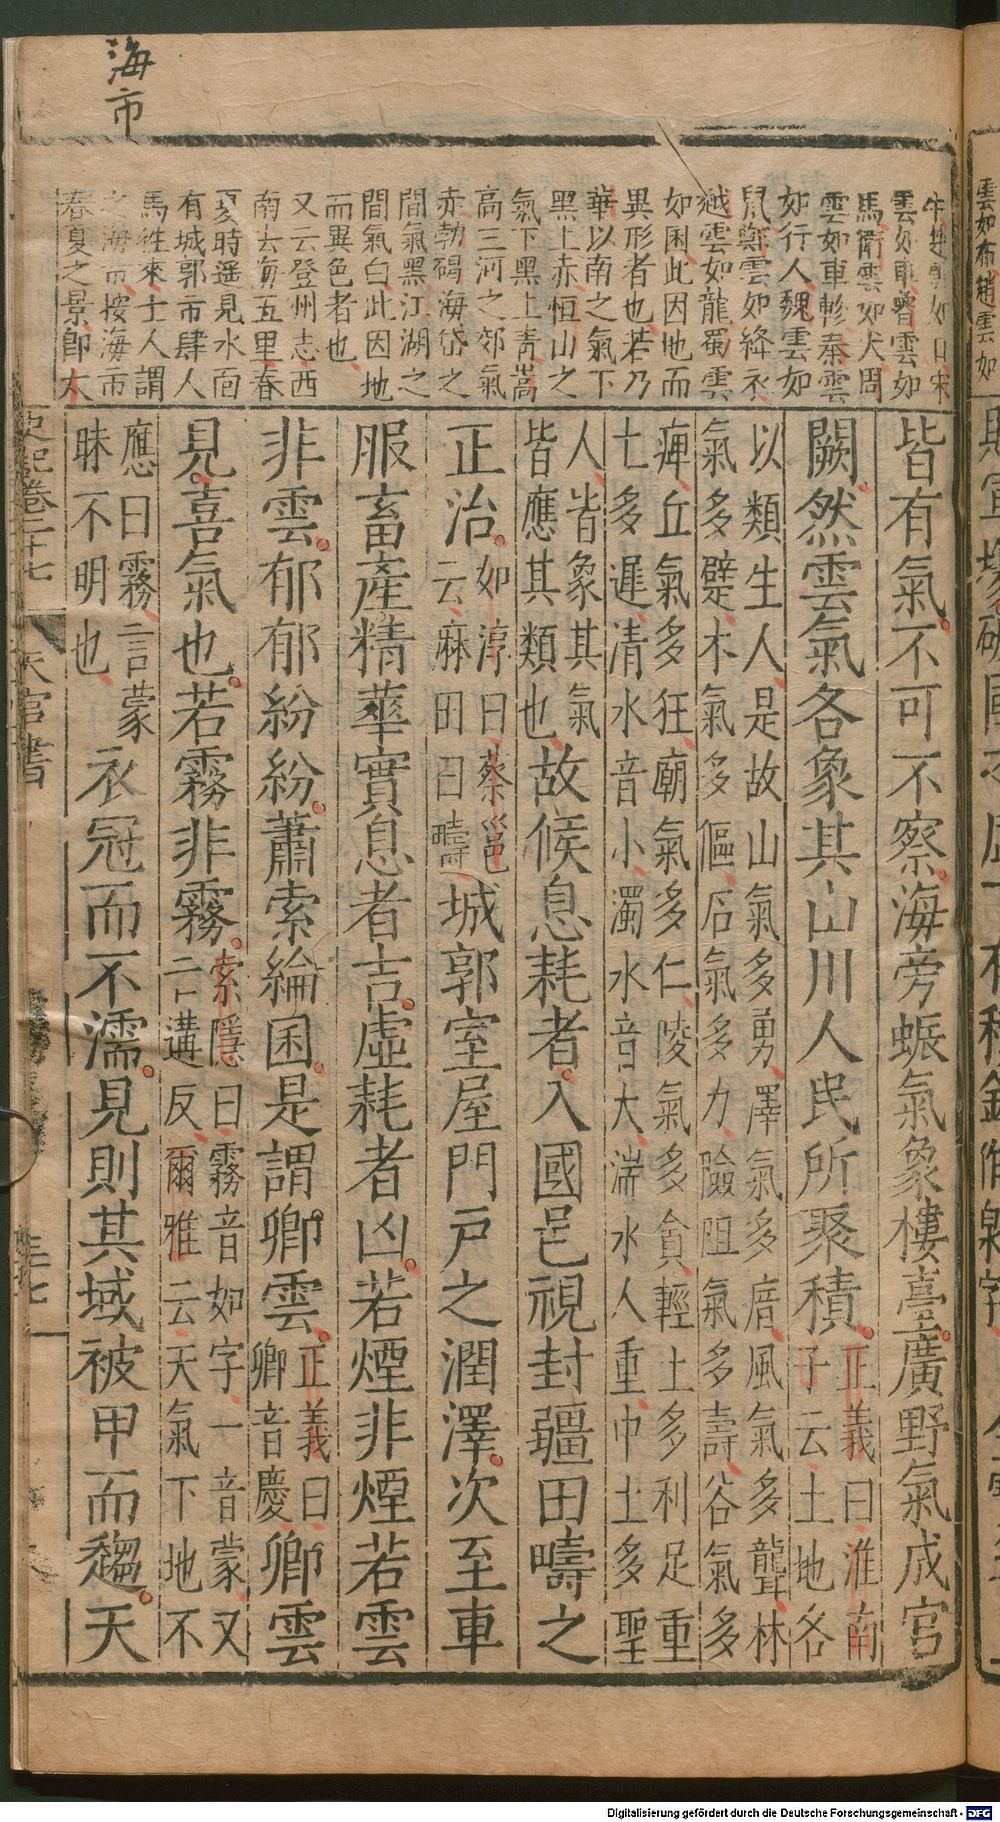 海市
牛楚雲如日宋
雲如車魯雲如
馬衛雲如犬周
雲如車軫秦雲
如行人魏雲如
鼠鄭雲如絳衣
越雲如龍蜀雲
如囷此因地而
異形者也若乃
華以南之氣下
黑上赤恒山之
氣下黑上青嵩
高三河之郊氣
赤勃碣海岱之
間氣黑江湖之
間氣白此因地
而異色者也
又云登州志西
南去海五里春
夏時遥見水面
有城郭市肆人
馬往來士人謂
之海市按海市
春夏之景卽太
皆有氣不可不察海旁蜃氣象樓臺廣野氣成宮
闕然雲氣各象其山川人民所聚積正義曰淮南
子云土地各
以類生人是故山氣多勇澤氣多瘖風氣多聾林
氣多躄木氣多傴石氣多力險阻氣多壽谷氣多
痺丘氣多狂廟氣多仁陵氣多貪輕土多利足重
土多遲清水音小濁水音大湍水人重中土多聖
人皆象其氣
皆應其類也故候息耗者入國邑視封疆田疇之
正治如淳曰蔡邕
云麻田曰疇城郭室屋門戸之潤澤次至車
服畜產精華實息者吉虛耗者凶若煙非煙若雲
非雲郁郁紛紛蕭索綸囷是謂卿雲正義曰
卿音慶卿雲
見喜氣也若霧非霧索隱曰霧音如字一音蒙又
亡遘反爾雅云天氣下地不
應曰霧言蒙
昧不明也衣冠而不濡見則其域被甲而趨天
史記卷二十七
天官書
三七
雲如布趙雲如
Digitalisierung gefördert durch die Deutsche Forschungsgemeinschaft - DFG